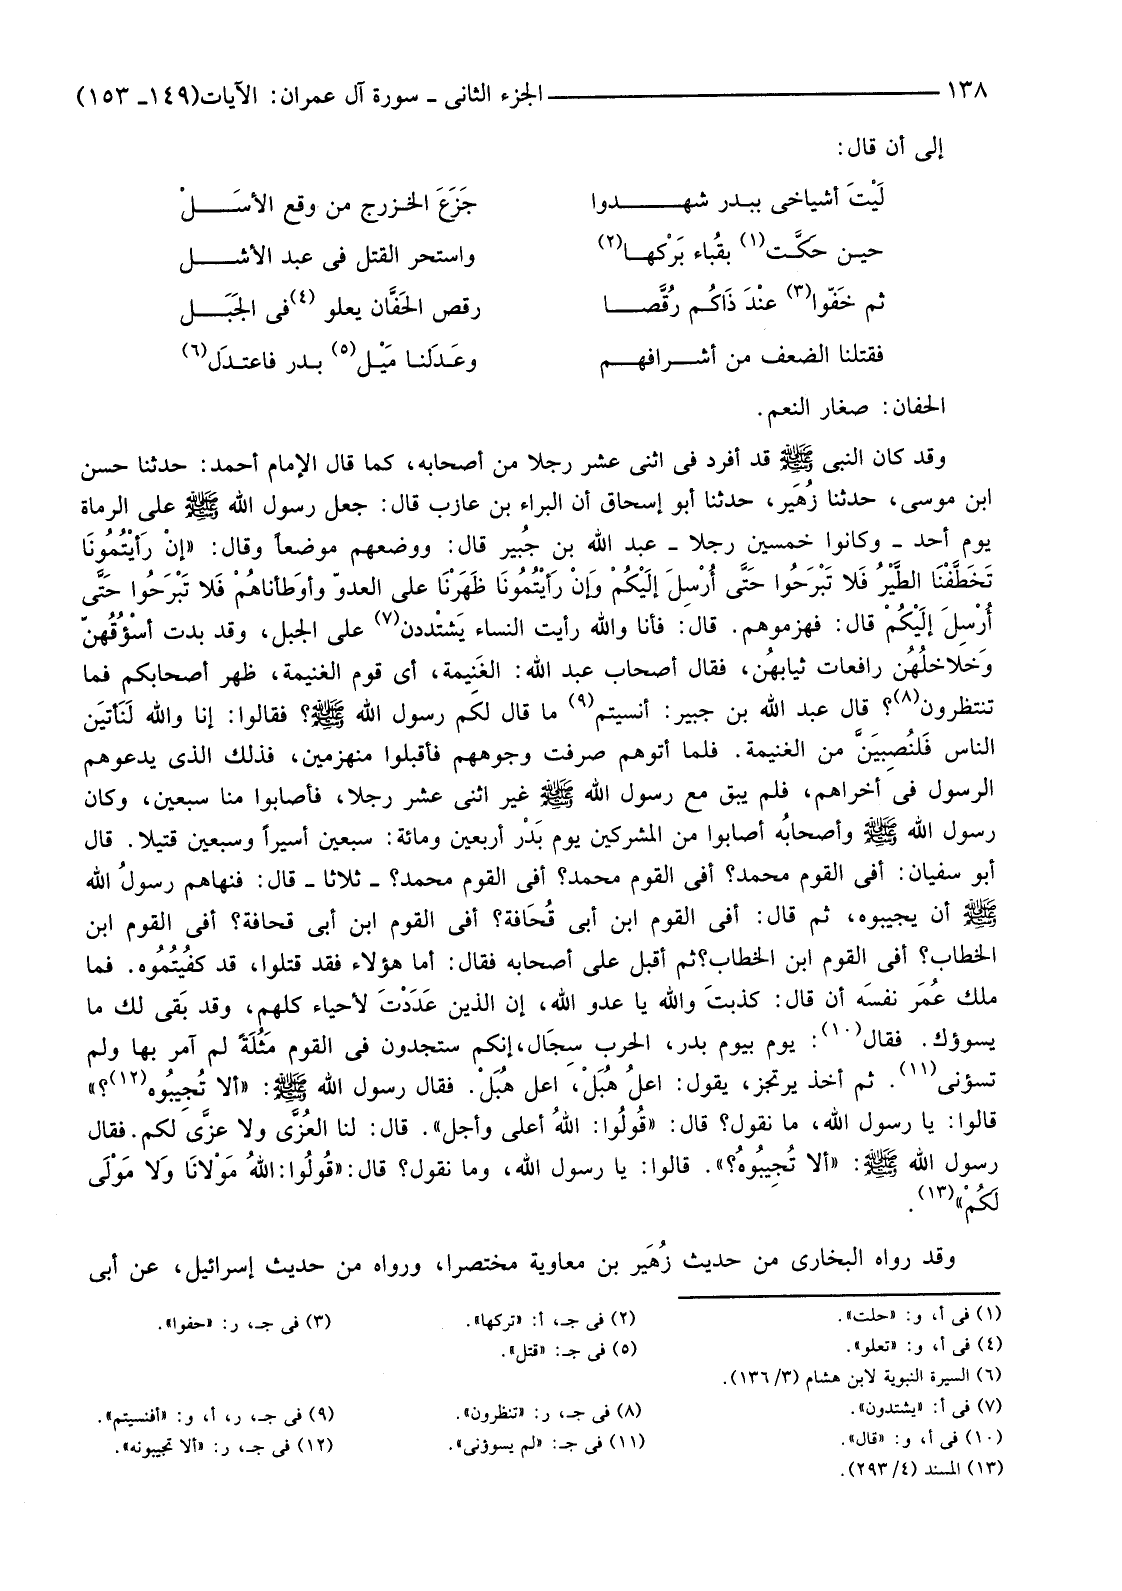 ١٣٨ ــــــــــــ الجزء الثانى ـ سورة آل عمران: الآيات(١٤٩ـ ١٥٣)
إلى أن قال:
لَيْتَ أشياخى ببدر شهـــــدوا جَزَعَ الخـزرج من وقع الأسَـــــلْ
حيـن حَكَّـت(١) بقُباء بَرْكهـا(٢) واستحر القتل فى عبد الأشـــل
ثم خَفّوا(٣) عنْدَ ذَاكُـم رُقَّصـــا رقص الحَفَّان يعلو (٤)فى الجَبَـــل
فقتلنا الضعف من أشـــرافهـم وعَـدَلنـا مَيْـل(٥) بـدر فاعتـدَل(٦)
الحفان: صغار النعم.
وقد كان النبى ﷺ قد أفرد فى اثنى عشر رجلا من أصحابه، كما قال الإمام أحمد: حدثنا حسن
ابن موسى، حدثنا زُهَير، حدثنا أبو إسحاق أن البراء بن عازب قال: جعل رسول الله ﷺ على الرماة
يوم أحد ـ وكانوا خمسين رجلا ـ عبد الله بن جُبير قال: ووضعهم موضعاً وقال: «إنْ رَأيْتُمُونَا
تَخَطَّفْنَا الطَّيْرُ فَلا تَبْرَحُوا حَتَّى أُرْسِلَ إلَيْكُمْ وَإنْ رَأيْتُمُونَا ظَهَرْنَا على العدوّ وأوَطأناهُمْ فَلا تَبْرَحُوا حَتَّى
أُرْسِلَ إلَيْكُمْ قال: فهزموهم. قال: فأنا والله رأيت النساء يَشْتددن(٧) على الجبل، وقد بدت أسْؤُقُهنّ
وخَلاخلُهُن رافعات ثيابهُن، فقال أصحاب عبد الله: الغَنِيمة، أى قوم الغنيمة، ظهر أصحابكم فما
تنتظرون(٨)؟ قال عبد الله بن جبير: أنسيتم(٩) ما قال لكم رسول الله ﷺ؟ فقالوا: إنا والله لَنَأتيَن
الناس فَلنُصِيبَنَّ من الغنيمة. فلما أتوهم صرفت وجوههم فأقبلوا منهزمين، فذلك الذى يدعوهم
الرسول فى أخراهم، فلم يبق مع رسول الله ﷺ غير اثنى عشر رجلا، فأصابوا منا سبعين، وكان
رسول الله ﷺ وأصحابُه أصابوا من المشركين يوم بَدْر أربعين ومائة: سبعين أسيراً وسبعين قتيلا. قال
أبو سفيان: أفى القوم محمد؟ أفى القوم محمد؟ أفى القوم محمد؟ ـ ثلاثا ـ قال: فنهاهم رسولُ الله
ﷺ أن يجيبوه، ثم قال: أفى القوم ابن أبى قُحَافة؟ أفى القوم ابن أبى قحافة؟ أفى القوم ابن
الخطاب؟ أفى القوم ابن الخطاب؟ثم أقبل على أصحابه فقال: أما هؤلاء فقد قتلوا، قد كفُيتُمُوه. فما
ملك عُمَر نفسَه أن قال: كذبتَ والله يا عدو الله، إن الذين عَدَدْتَ لأحياء كلهم، وقد بَقى لك ما
يسوؤك. فقال(١٠): يوم بيوم بدر، الحرب سِجَال،إنكم ستجدون فى القوم مَثُلَةً لم آمر بها ولم
تسؤنى(١١). ثم أخذ يرتجز، يقول: اعلُ هُبَلْ، اعل هُبَلْ. فقال رسول الله ﷺ: «ألا تُجِيبُوه(١٢)؟»
قالوا: يا رسول الله، ما نقول؟ قال: «قُولُوا: اللهُ أعلى وأجل». قال: لنا العُزَّى ولا عزَّى لكم.فقال
رسول الله ﷺ: «ألا تُجِيبُوهُ؟». قالوا: يا رسول الله، وما نقول؟ قال:«قُولُوا:اللهُ مَوْلانَا وَلا مَوْلَى
لَكُمْ»(١٣).
وقد رواه البخارى من حديث زُهَير بن معاوية مختصرا، ورواه من حديث إسرائيل، عن أبى
(١) فى أ، و: «حلت». (٢) فى جـ، أ: «تركها». (٣) فى جـ، ر: «حفوا».
(٤) فى أ، و: «تعلو». (٥) فى جـ: «قتل».
(٦) السيرة النبوية لابن هشام (٣/ ١٣٦).
(٧) فى أ: «يشتدون». (٨) فى جـ، ر: «تنظرون». (٩) فى جـ، ر، أ، و: «أفنسيتم».
(١٠) فى أ، و: «قال». (١١) فى جـ: «لم يسوؤنى». (١٢) فى جـ، ر: «ألا تجيبونه».
(١٣) المسند (٤/ ٢٩٣).